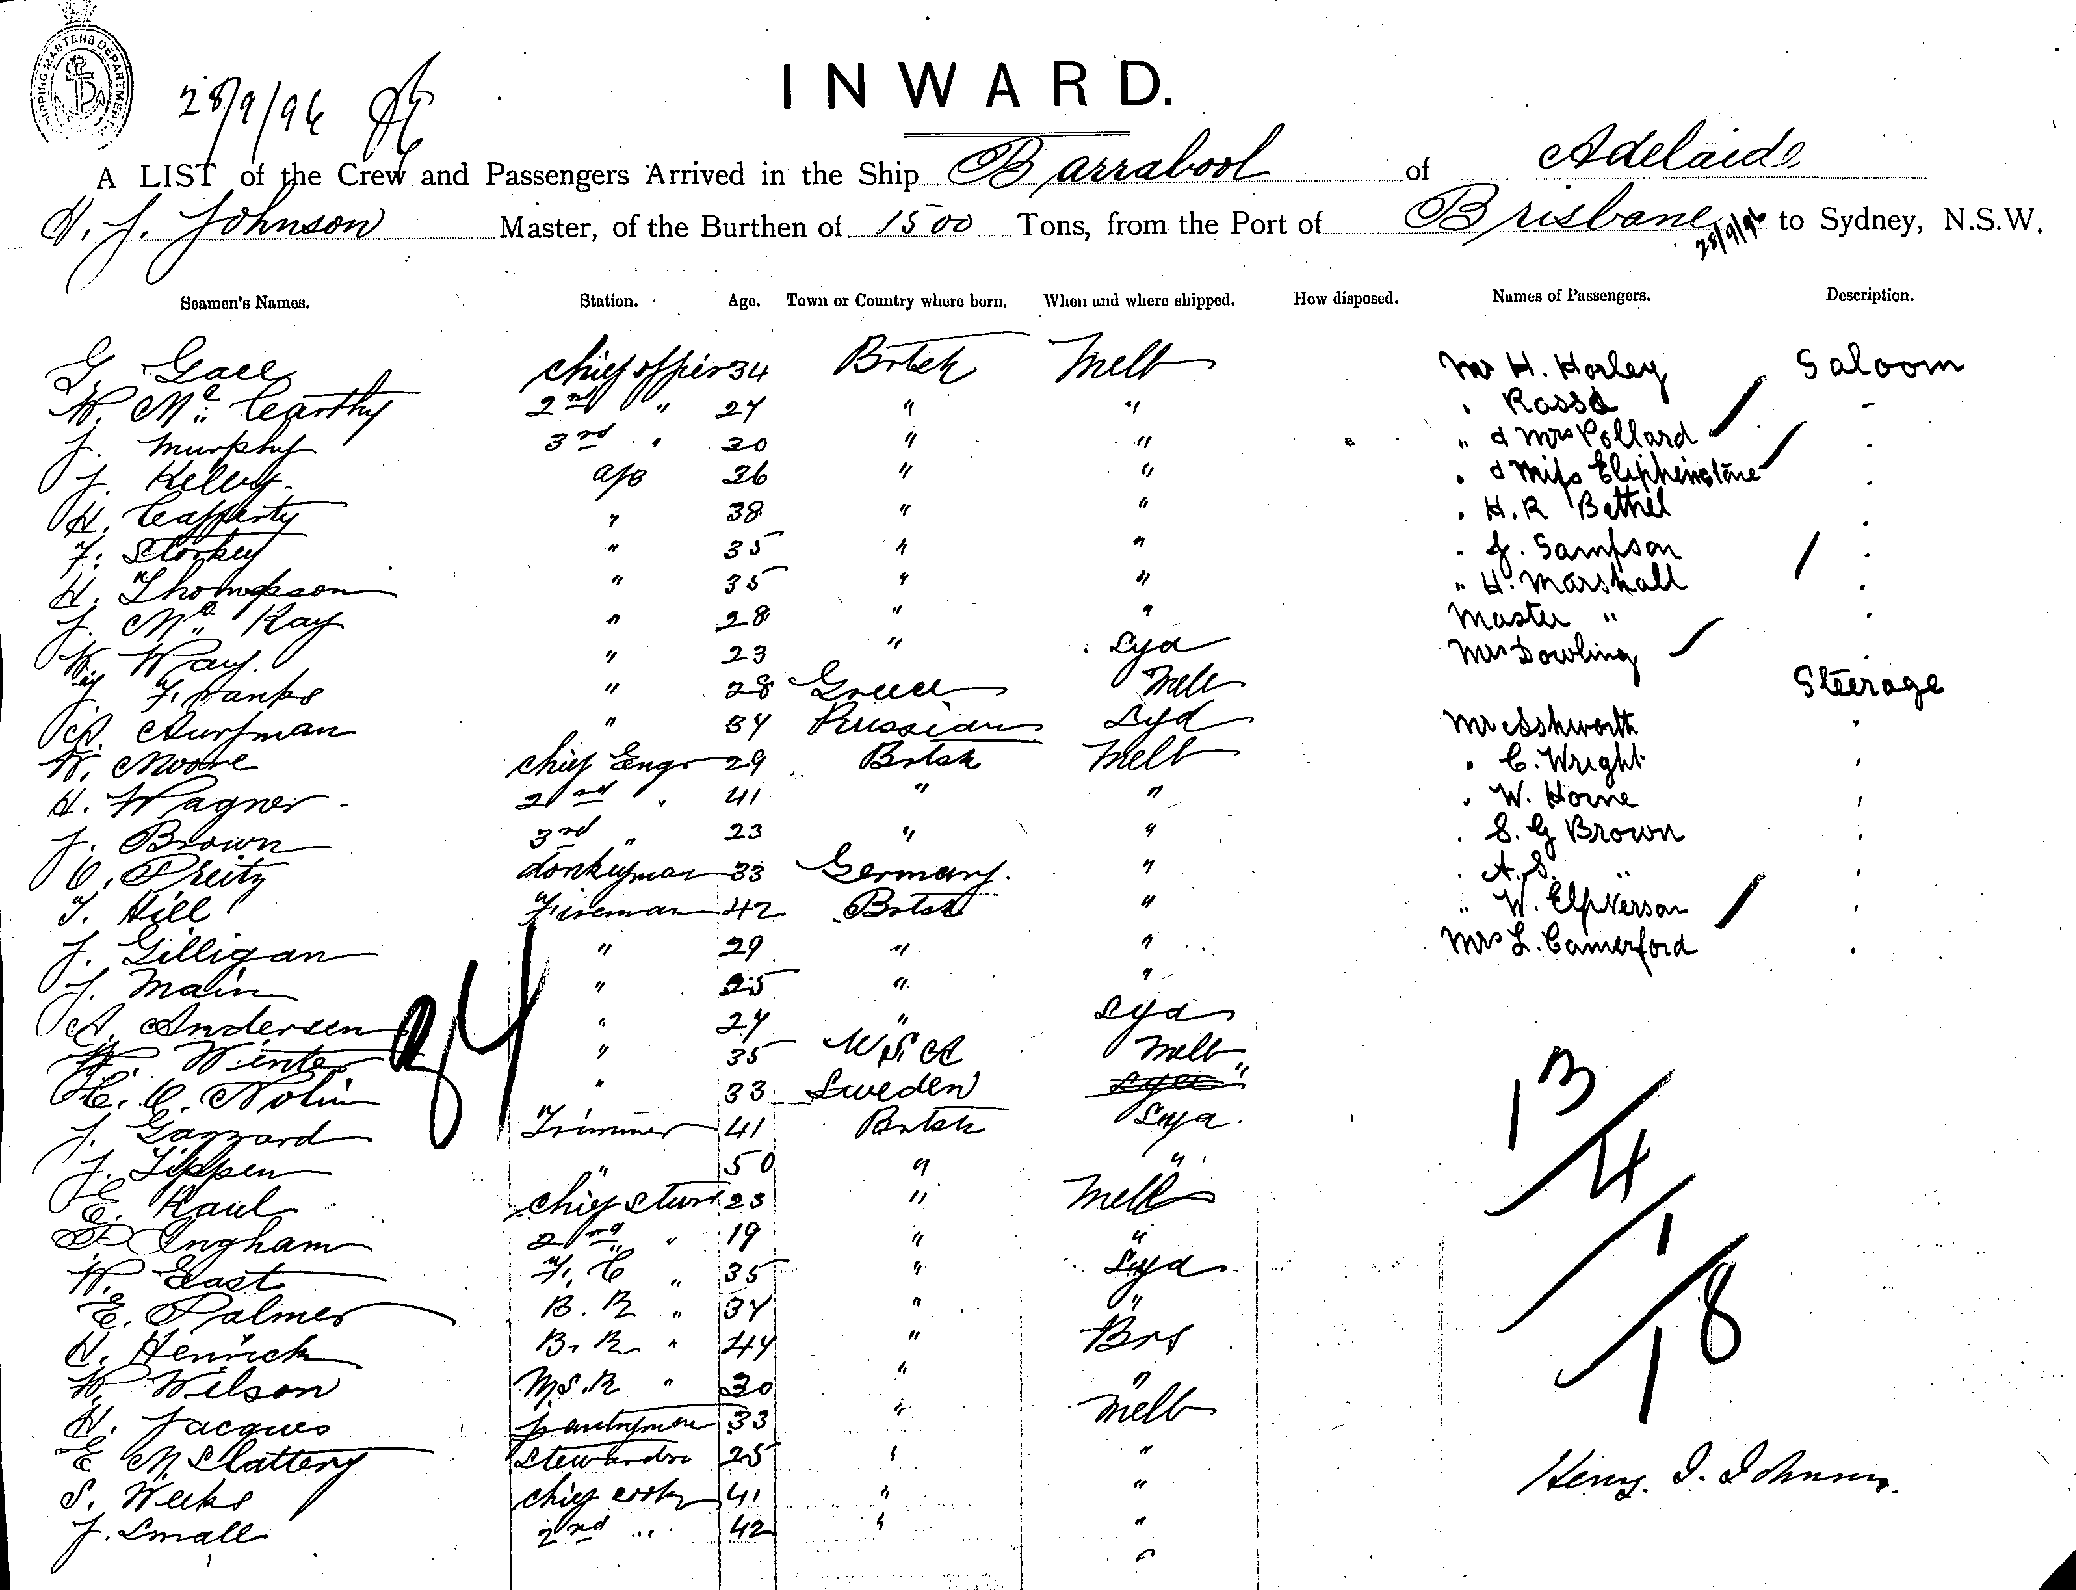 SHIPPING MASTERS DEPARTMENT
28/9/96
INWARD.
A LIST of the Crew and Passengers Arrived in the Ship Barrabool of Adelaide
H. J. Johnson Master, of the Burthen of 1500 Tons, from the Port of Brisbane 28/9/96 to Sydney, N.S.W.
Seamen's Names. Station. Age. Town or Country where born. When and where shipped. How disposed. Names of Passengers. Description.
G. Gace chief officer 34 Britsh Melb Mr H. Horley Saloom
W. Mc Carthy 2nd " 27 " " " Rossd
J. Murphy 3rd " 20 " " " & Mrs Pollard
J. Kelly. a/b 26 " " " & Miss Elephinstone
H. Cafferty " 38 " " " H. R Bethel
F. Storkey " 35 " " " J. Sampson
H. Thompson " 35 " " " H. Marshall
J. Mc Kay " 28 " " Master "
W. Way. " 23 " Syd Mrs Dowling
J. Franks " 28 Greece Melb Steerage
A. Aurfman " 34 Russian Syd Mr Ashworth
W. Moore chief Engr 29 Britsh Melb " C. Wright
H. Wagner 2nd " 41 " " " W. Horne
J. Brown 3rd " 23 " " " S. G Brown
C. Preitz donkeyman 33 Germany. " " A. S. "
T. Hill Fireman 42 Britsh " " W. Elpkerson
J. Gilligan " 29 " " Mrs L. Camerford
J. Main " 25 " "
A. Andersen " 27 " Syd
W. Winter " 35 U S A Melb
H. C. Nolin " 33 Sweden "
J. Gazzard Trimmer 41 Britsh Syd
J. Tippen " 50 " "
E. Kaul chief Stwd 23 " Melb
P Ingham 2nd " 19 " "
W. East F. C " 35 " Syd
E. Palmer B. R " 37 " "
H. Henrick B. R. " 44 " Brs
W. Wilson M.S.R " 30 " "
H. Jacques pantryman 33 " Melb
E M Slattery Stewardss 25 " "
S. Weeks chief cook 41 " "
J. Small 2nd " 42 " "
34
13/4/1/18
Henry. J. Johnson.